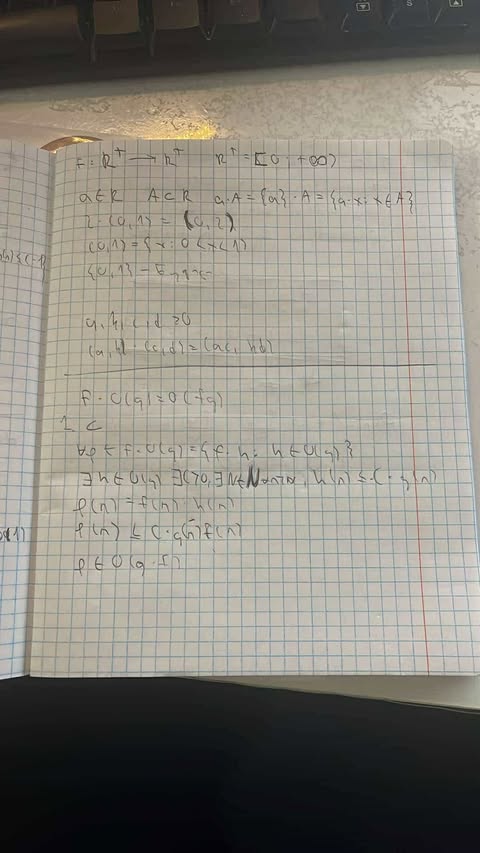 F: R⁺ → R⁺ R⁺ = [0; +∞)
a∈R A⊂R a·A = {a}·A = {a·x: x∈A}
2·(0,1) = (0,2)
(0,1) = {x: 0<x<1}
{0,1} –
a, b, c, d >0
(a,b)·(c,d) = (ac, bd)
f·O(g) = O(fg)
1. ⊂
∀p ∈ f·O(g) = {f·h: h∈O(g)}
∃h∈O(g) ∃C>0, ∃N∈N ∀n≥N, h(n) ≤ C·g(n)
p(n) = f(n)·h(n)
p(n) ≤ C·g(n)f(n)
p∈O(g·f)